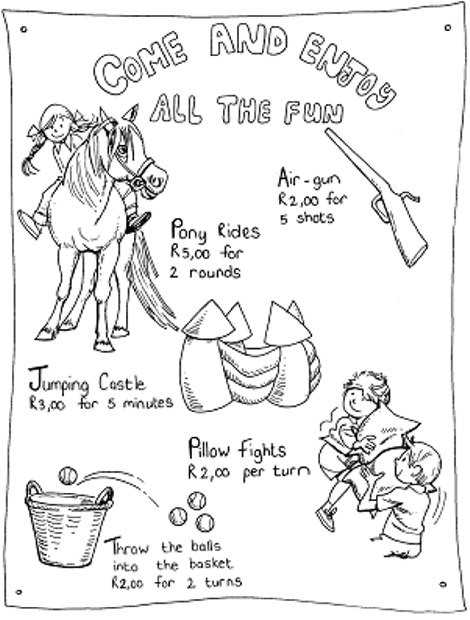 COME AND ENJOY
ALL THE FUN
Air-gun
R2,00 for
5 shots
Pony Rides
R5,00 for
2 rounds
Jumping Castle
R3,00 for 5 minutes
Pillow fights
R2,00 per turn
Throw the balls
into the basket
R2,00 for 2 turns